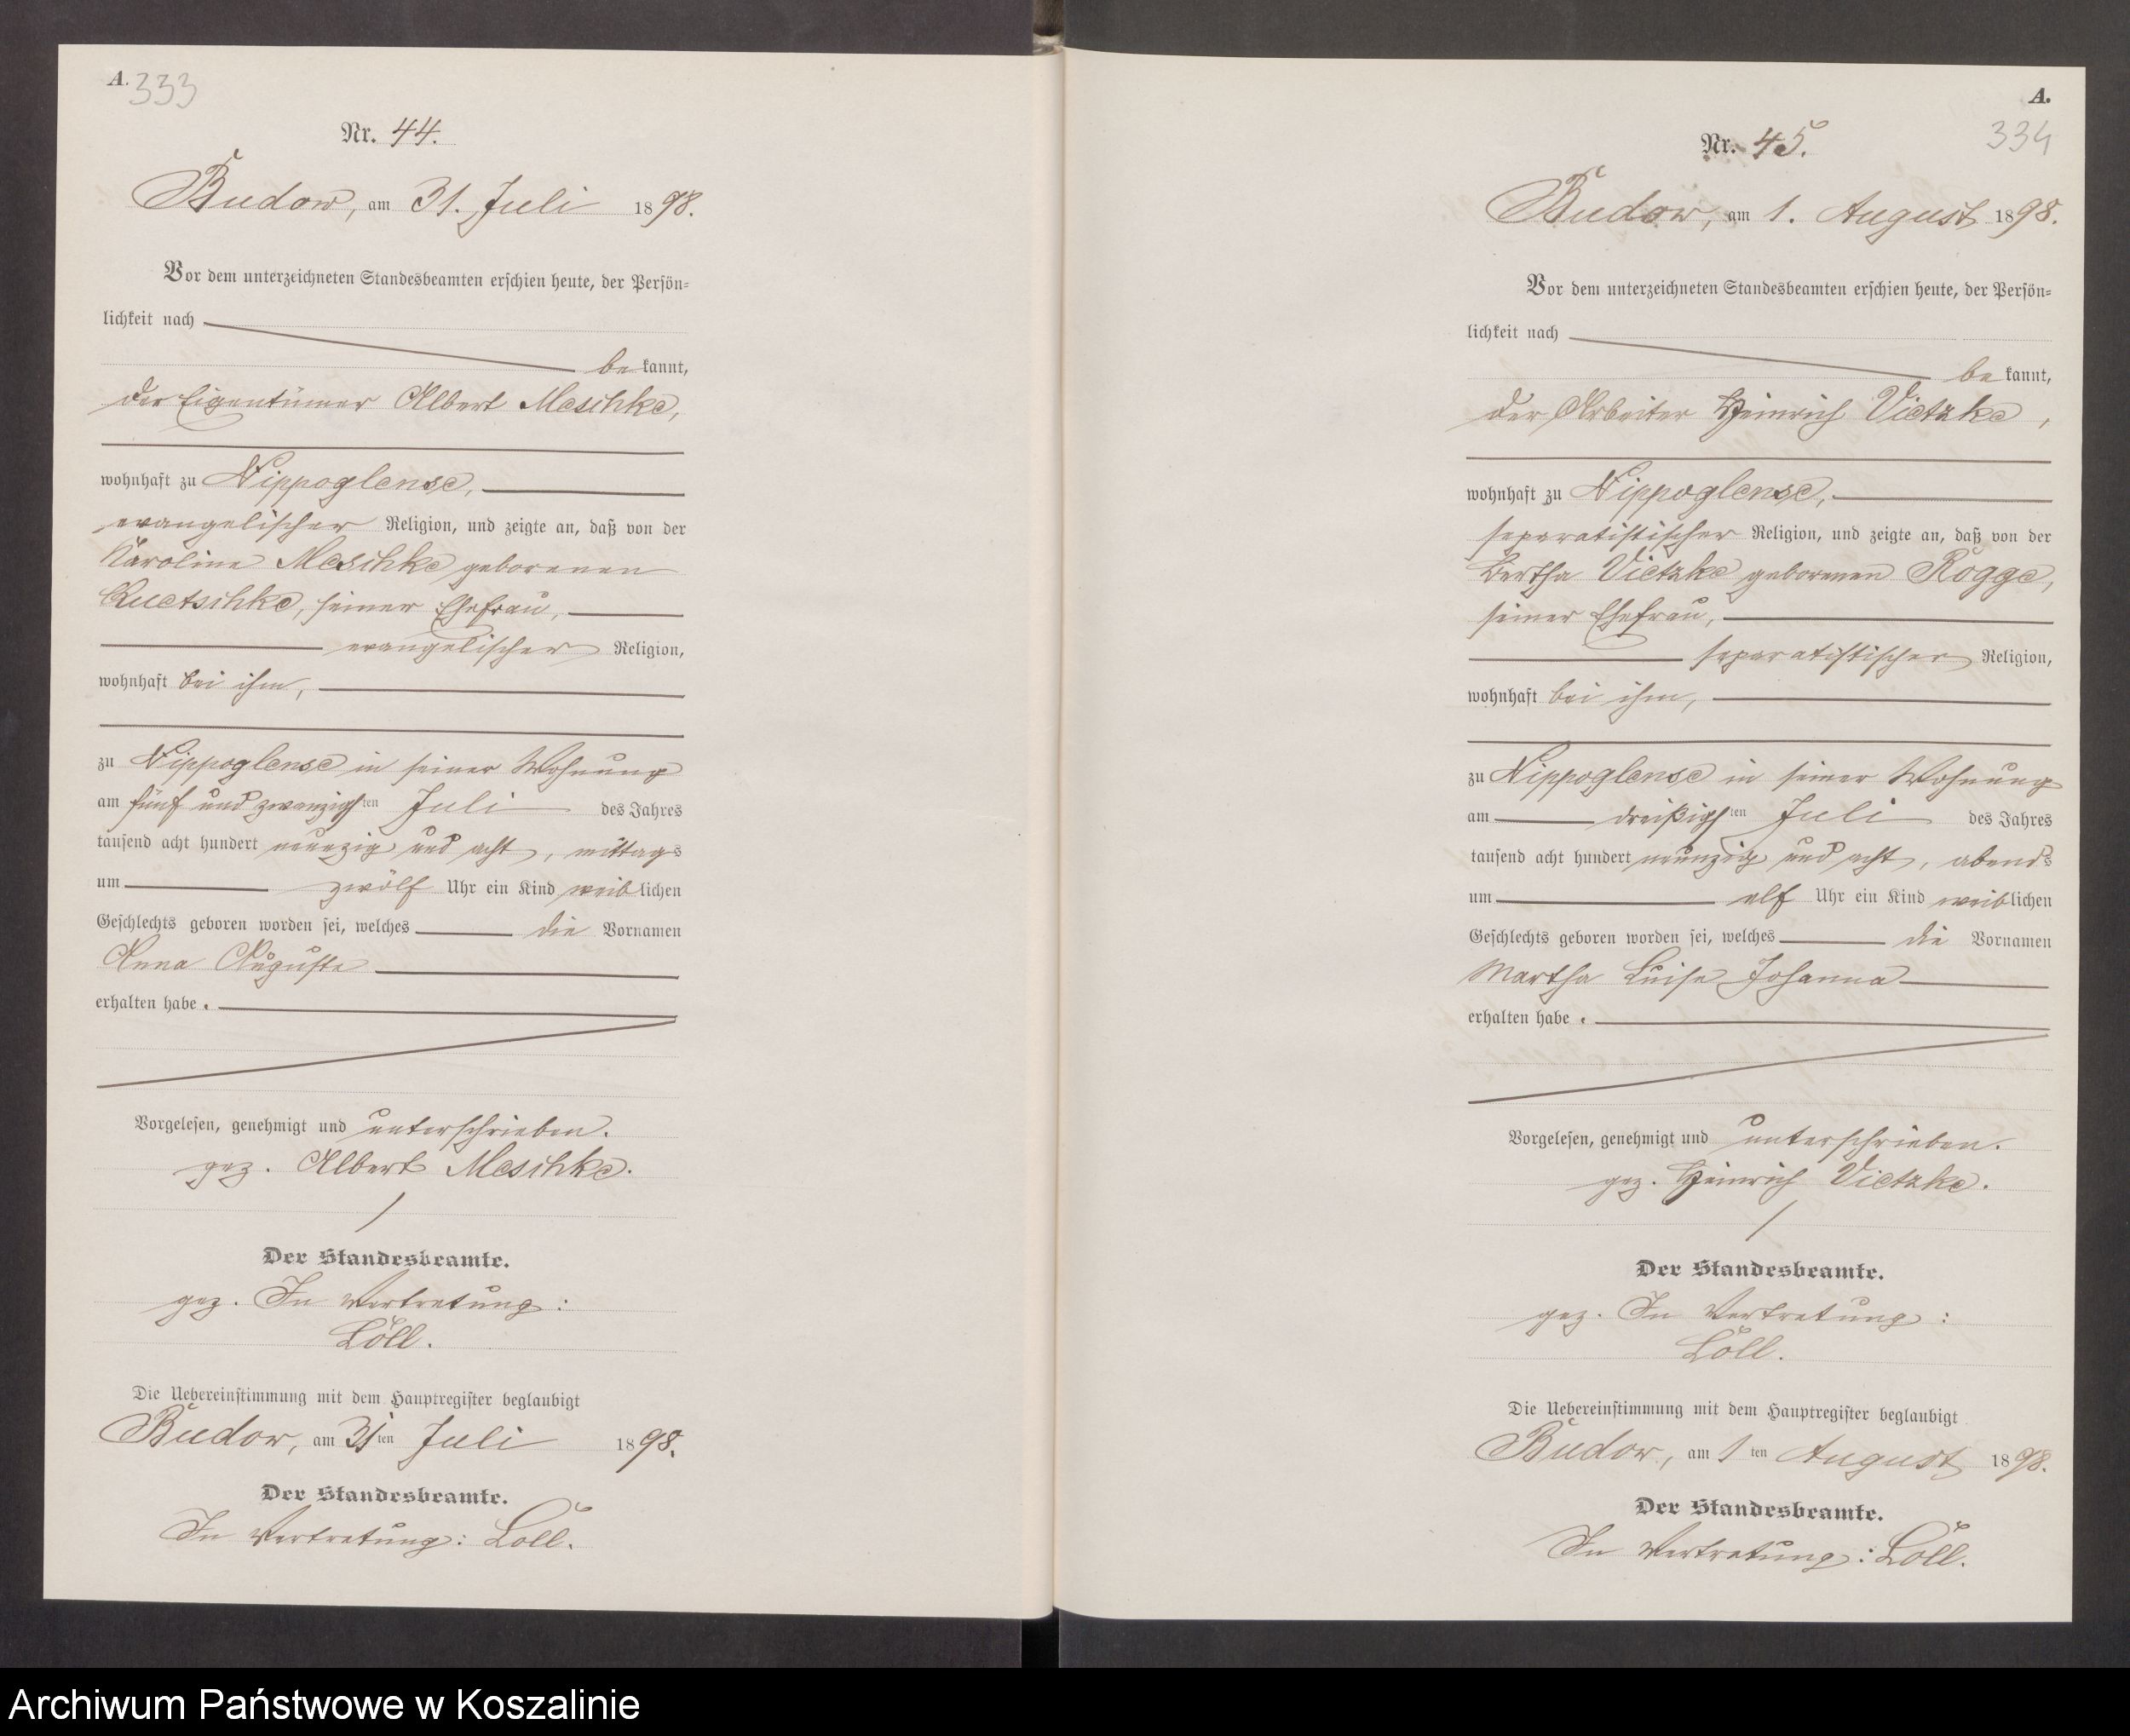 A. 333
Nr. 44.
Budow, am 31. Juli 1898.
Vor dem unterzeichneten Standesbeamten erschien heute, der Persön-
lichkeit nach
be kannt,
der Eigentümer Albert Meschke,
wohnhaft zu Nippoglense,
evangelischer Religion, und zeigte an, daß von der
Karoline Meschke geborenen
Quetschke, seiner Ehefrau,
evangelischer Religion,
wohnhaft bei ihm,
zu Nippoglense in seiner Wohnung
am fünf und zwanzigsten Juli des Jahres
tausend acht hundert neunzig und acht, mittags
um zwölf Uhr ein Kind weiblichen
Geschlechts geboren worden sei, welches die Vornamen
Anna Auguste
erhalten habe.
Vorgelesen, genehmigt und unterschrieben.
gez. Albert Meschke.
Der Standesbeamte.
gez. In Vertretung:
Löll.
Die Uebereinstimmung mit dem Hauptregister beglaubigt
Budow, am 31ten Juli 1898.
Der Standesbeamte.
In Vertretung: Löll.
A.
334
Nr. 45.
Budow, am 1. August 1898.
Vor dem unterzeichneten Standesbeamten erschien heute, der Persön-
lichkeit nach
be kannt,
der Arbeiter Heinrich Vietzke,
wohnhaft zu Nippoglense,
separatistischer Religion, und zeigte an, daß von der
Bertha Vietzke geborenen Rogge,
seiner Ehefrau,
separatistischer Religion,
wohnhaft bei ihm,
zu Nippoglense in seiner Wohnung
am dreißigsten Juli des Jahres
tausend acht hundert neunzig und acht, abends
um elf Uhr ein Kind weiblichen
Geschlechts geboren worden sei, welches die Vornamen
Martha Luise Johanna
erhalten habe.
Vorgelesen, genehmigt und unterschrieben.
gez. Heinrich Vietzke.
Der Standesbeamte.
gez. In Vertretung:
Löll.
Die Uebereinstimmung mit dem Hauptregister beglaubigt
Budow, am 1ten August 1898.
Der Standesbeamte.
In Vertretung: Löll.
Archiwum Państwowe w Koszalinie